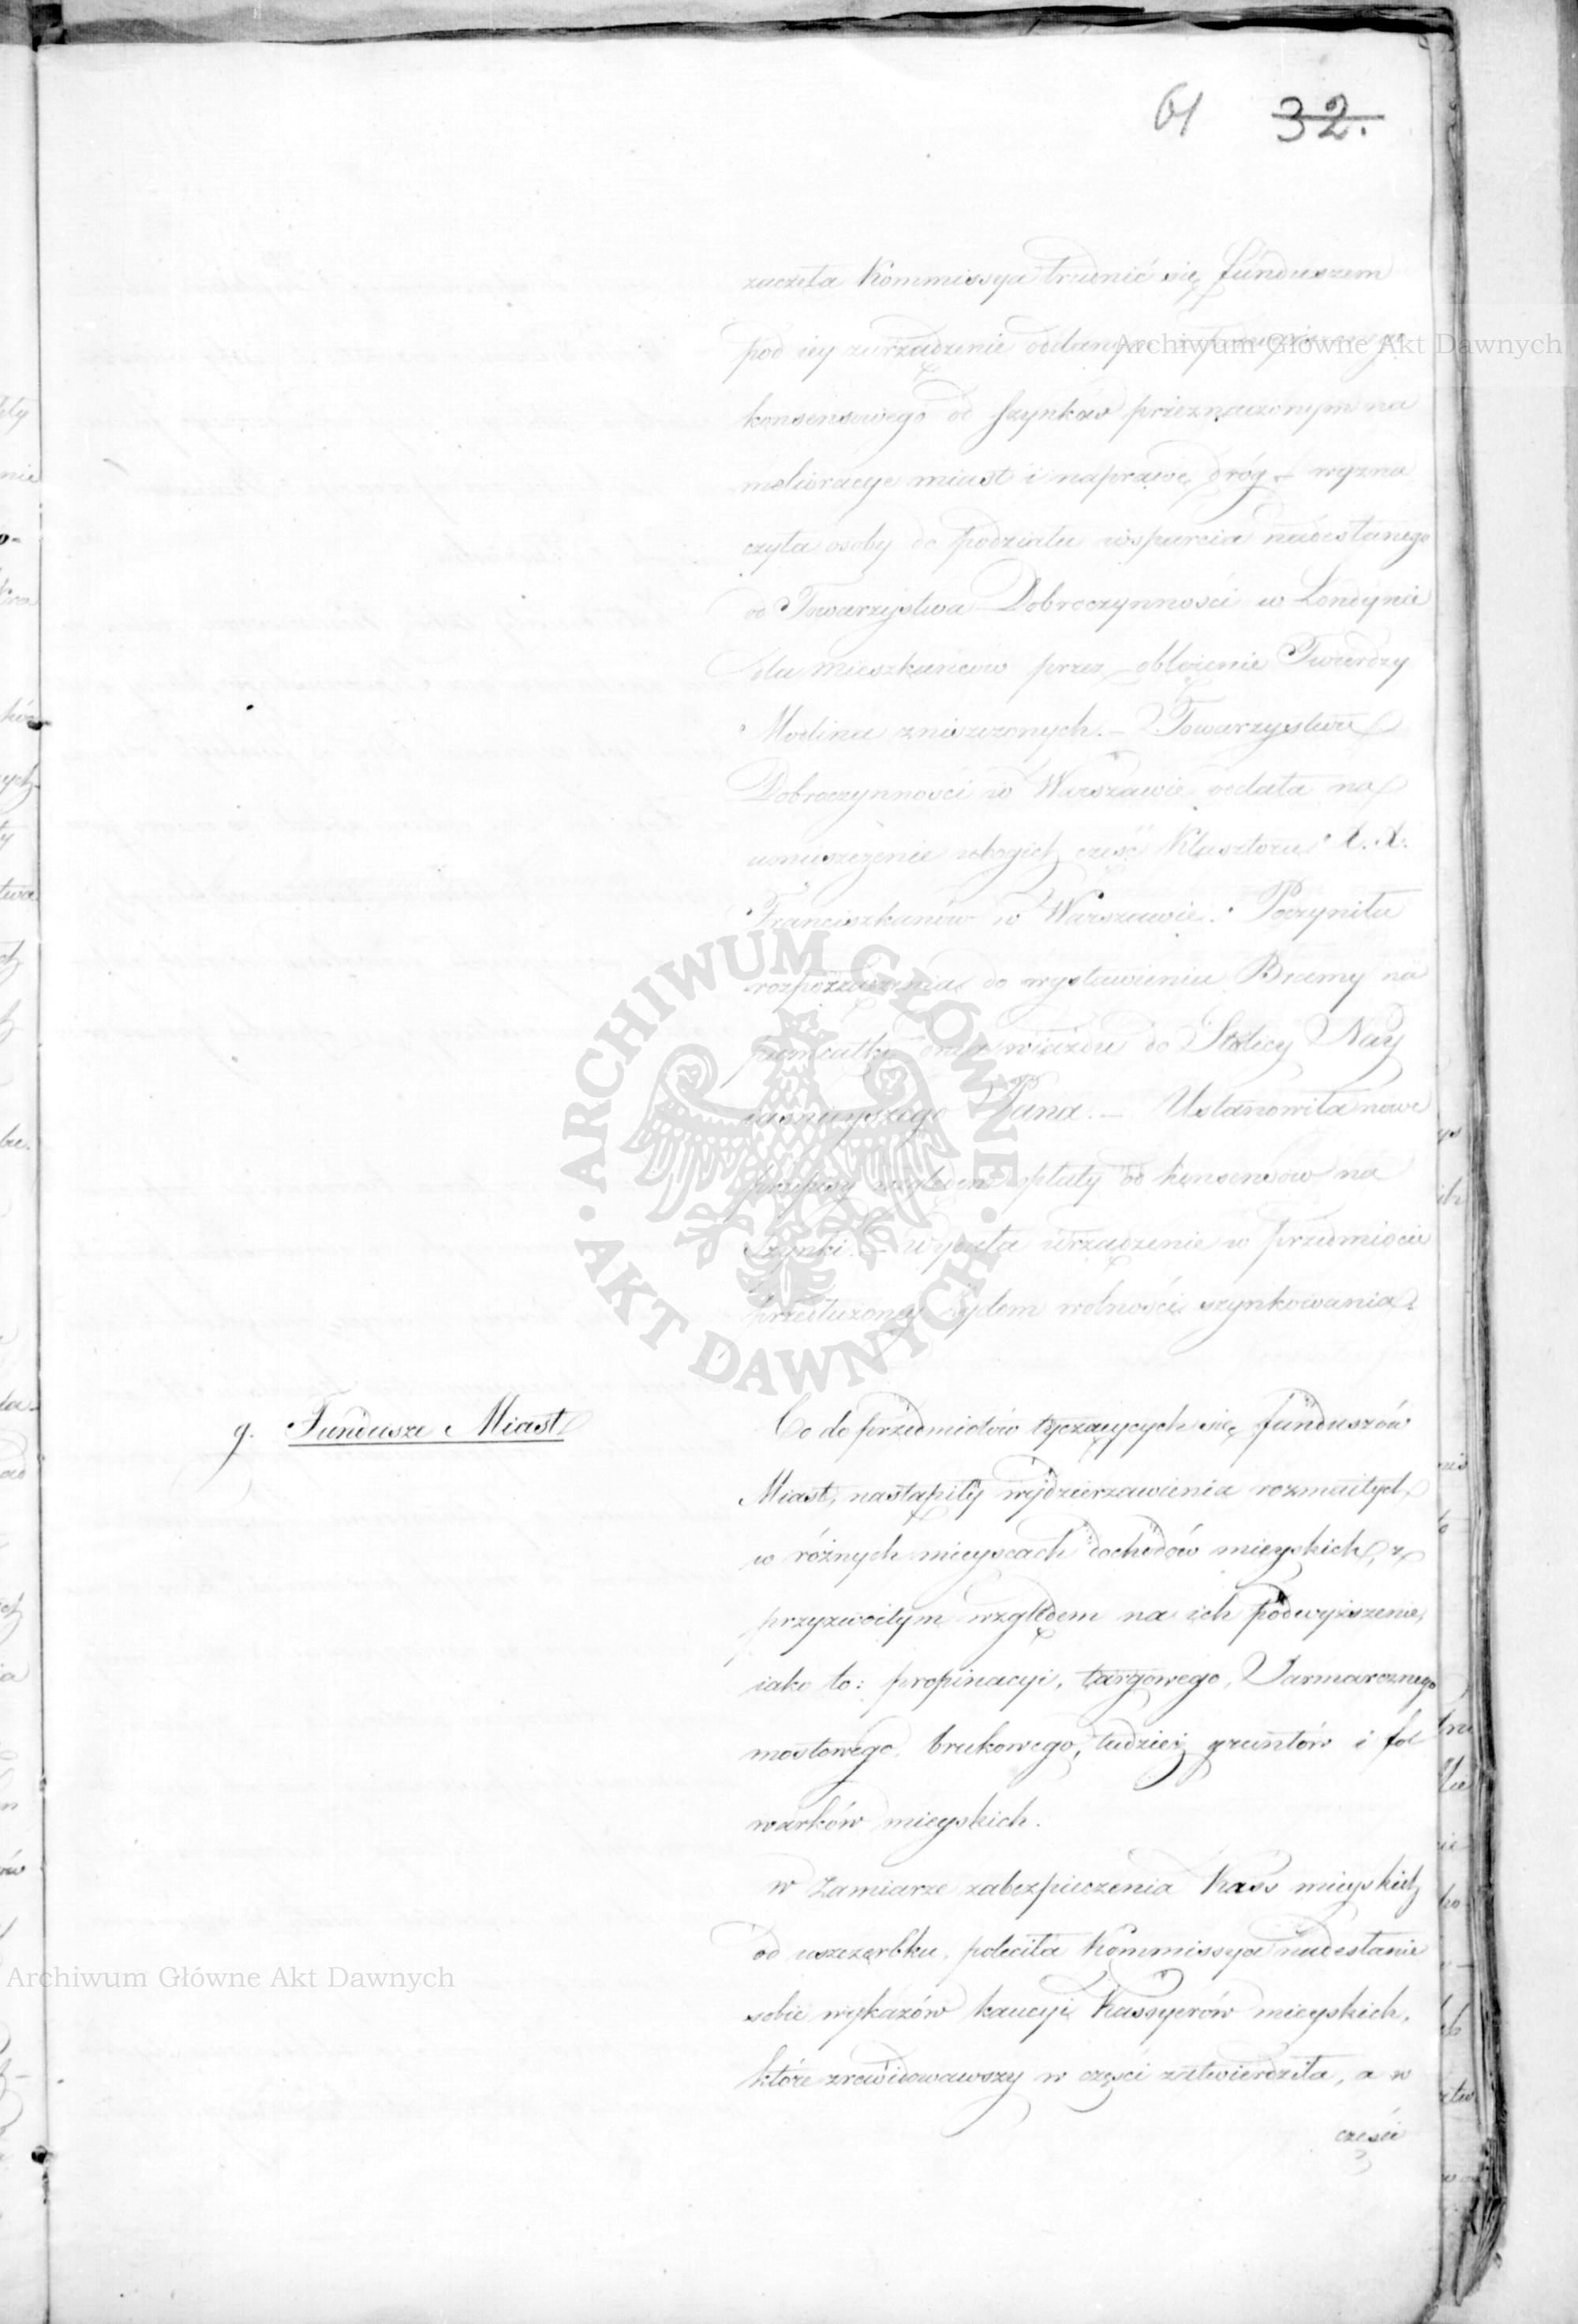 61 32.
zaczęła Kommissya trudnić się funduszem
pod iey zarządzenie oddanym
konsensowego od szynków przeznaczonym na
melioracye miast i naprawę dróg – wyzna
czyła osoby do podziału wsparcia nadesłanego
od Towarzystwa Dobroczynności w Londynie
dla mieszkańców przez oblężenie Twierdzy
Modlina zniszczonych. – Towarzystwu
Dobroczynności w Warszawie oddała na
umieszczenie ubogich część Klasztoru X. X.
Franciszkanów w Warszawie. Poczyniła
rozporządzenia do wystawienia Bramy na
pamiątkę wiazdu do Stolicy Nay
iaśnieyszego Pana. – Ustanowiła nowe
przepisy względem opłaty od konsensów na
szynki. – Wydała urządzenie w przedmiocie
przedłużoney Żydom wolności szynkowania.
g. Fundusze Miast
Co do przedmiotów tyczących się funduszów
Miast, nastąpiły wydzierżawienia rozmaitych
w różnych mieyscach dochodów mieyskich, z
przyzwoitym względem na ich podwyższenie,
iako to: propinacyi, targowego, Jarmarcznego
mostowego, brukowego, tudzież gruntów i fol
warków mieyskich.
w zamiarze zabezpieczenia Kass mieyskich
od uszczerbku, poleciła Kommissya nadesłanie
sobie wykazów kaucyi Kassyerów mieyskich,
które zrewidowawszy w części zatwierdziła, a w
części
Archiwum Główne Akt Dawnych
Archiwum Główne Akt Dawnych
ARCHIWUM GŁÓWNE · AKT DAWNYCH ·